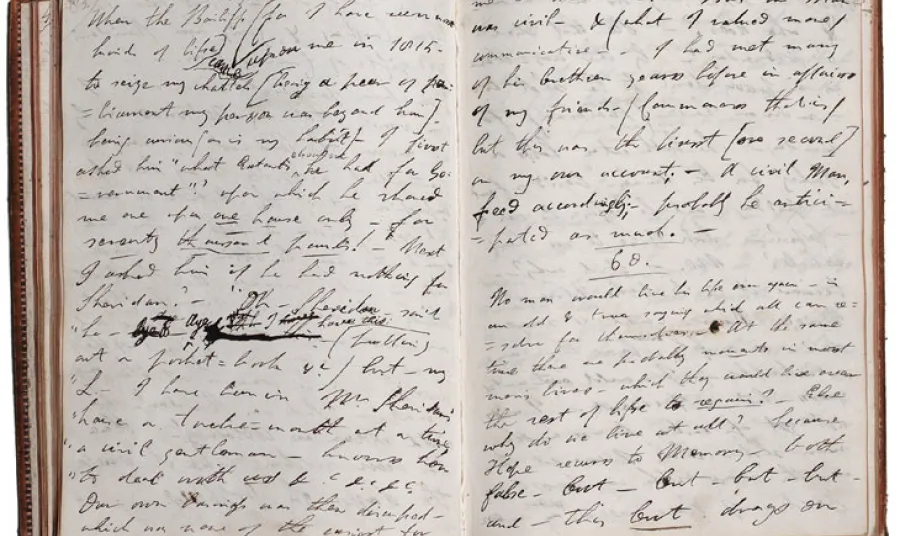 When the Bailiff (for I have seen most
kinds of life) came upon me in 1815 -
to seize my chattels (being a peer of par=
=liament my person was beyond him)
being curious (as is my habit) I first
asked him "what Extents elsewhere he had for Go=
=vernment"? upon which he showed
me one upon one house only - for
seventy thousand pounds! - Next
I asked him if he had nothing for
Sheridan? - "Oh - Sheridan said
"he - aye I have this - (pulling
out a pocket=book &c) but - my
"L. - I have been in Mr. Sheridan's
"house a twelve-month at a time
"a civil gentleman - knows how
"to deal with us &c &c &c.
Our own business was then discussed -
which was none of the easiest for
me
was civil - & (what I valued more)
communicative. - I had met many
of his brethren years before in affairs
of my friends - (Commoners that is)
but this was the first (or second)
on my own account; - A civil Man,
feed accordingly - probably he antici=
=pated as much. -
68.
No man would live his life over again - is
an old & true saying which all can re=
=solve for themselves. - At the same
time there are probably moments in most
men's lives - which they would live over
the rest of life to regain? - Else
why do we live at all? because
Hope recurs to Memory - both
false - but - but - but - but -
and - this but drags on